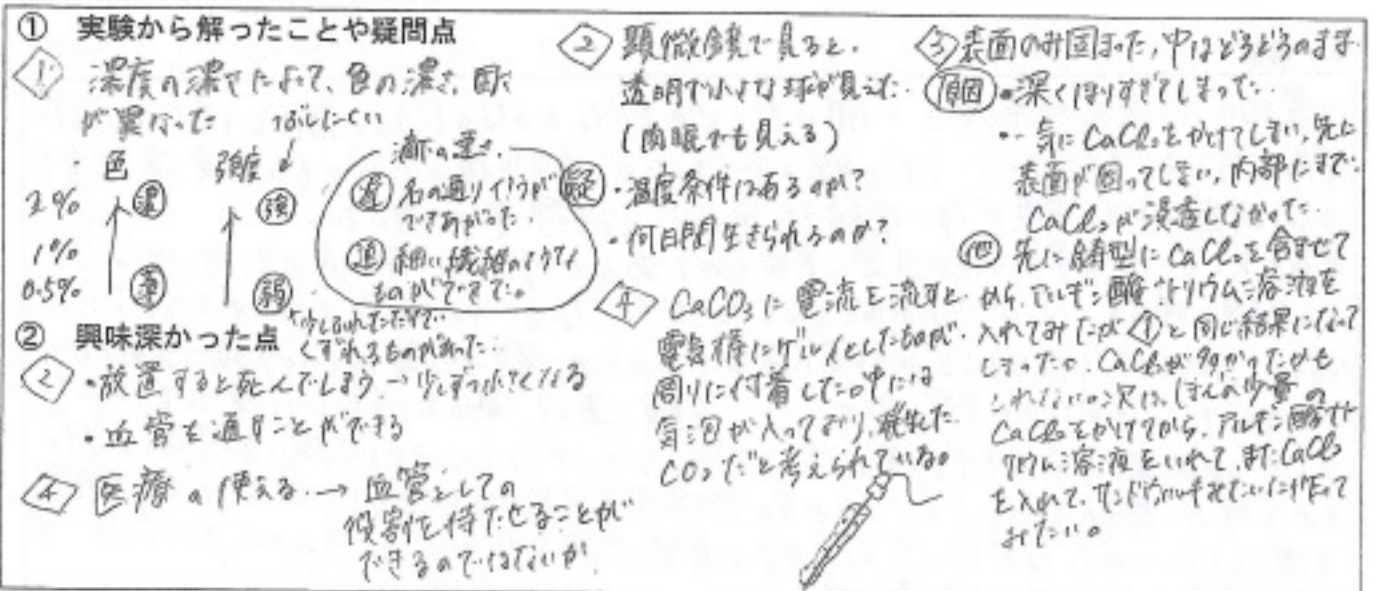 ① 実験から解ったことや疑問点
1 濃度の濃さによって、色の濃さ、固さ
が異なった つぶしにくい
色 強度
2% 濃 強
1%
0.5% 薄 弱
滴下の速さ
遅 名の通りイクラが
できあがった。
速 細い繊維のような
ものができた。
くずれるものがあった。
② 興味深かった点
2 ・放置すると死んでしまう→少しずつ
・血管を通すことができる
4 医療の使える → 血管としての
役割を持たせることが
できるのではないか
2 顕微鏡で見ると、
透明で小さな球が見えた。
(肉眼でも見える)
疑 ・温度条件はあるのか?
・何日間生きられるのか?
4 CaCO₃に電流を流すと
電気棒にゲル化したものが
周りに付着した。中には
気泡が入っており、
CO₂だと考えられている。
3 表面のみ固まった,中はどろどろのまま
原因 ・深くほりすぎてしまった。
・一気にCaCl₂をかけてしまい,先に
表面が固ってしまい,内部にまで
CaCl₂が浸透しなかった。
他 先に鋳型にCaCl₂を合ませて
から、アルギン酸ナトリウム溶液を
入れてみたが①と同じ結果になって
しまった。CaCl₂が多かったかも
しれない。次は、ほんの少量の
CaCl₂をかけてから、アルギン酸ナト
リウム溶液をいれて、またCaCl₂
を入れて、サンドウィッチみたいに作って
みたい。